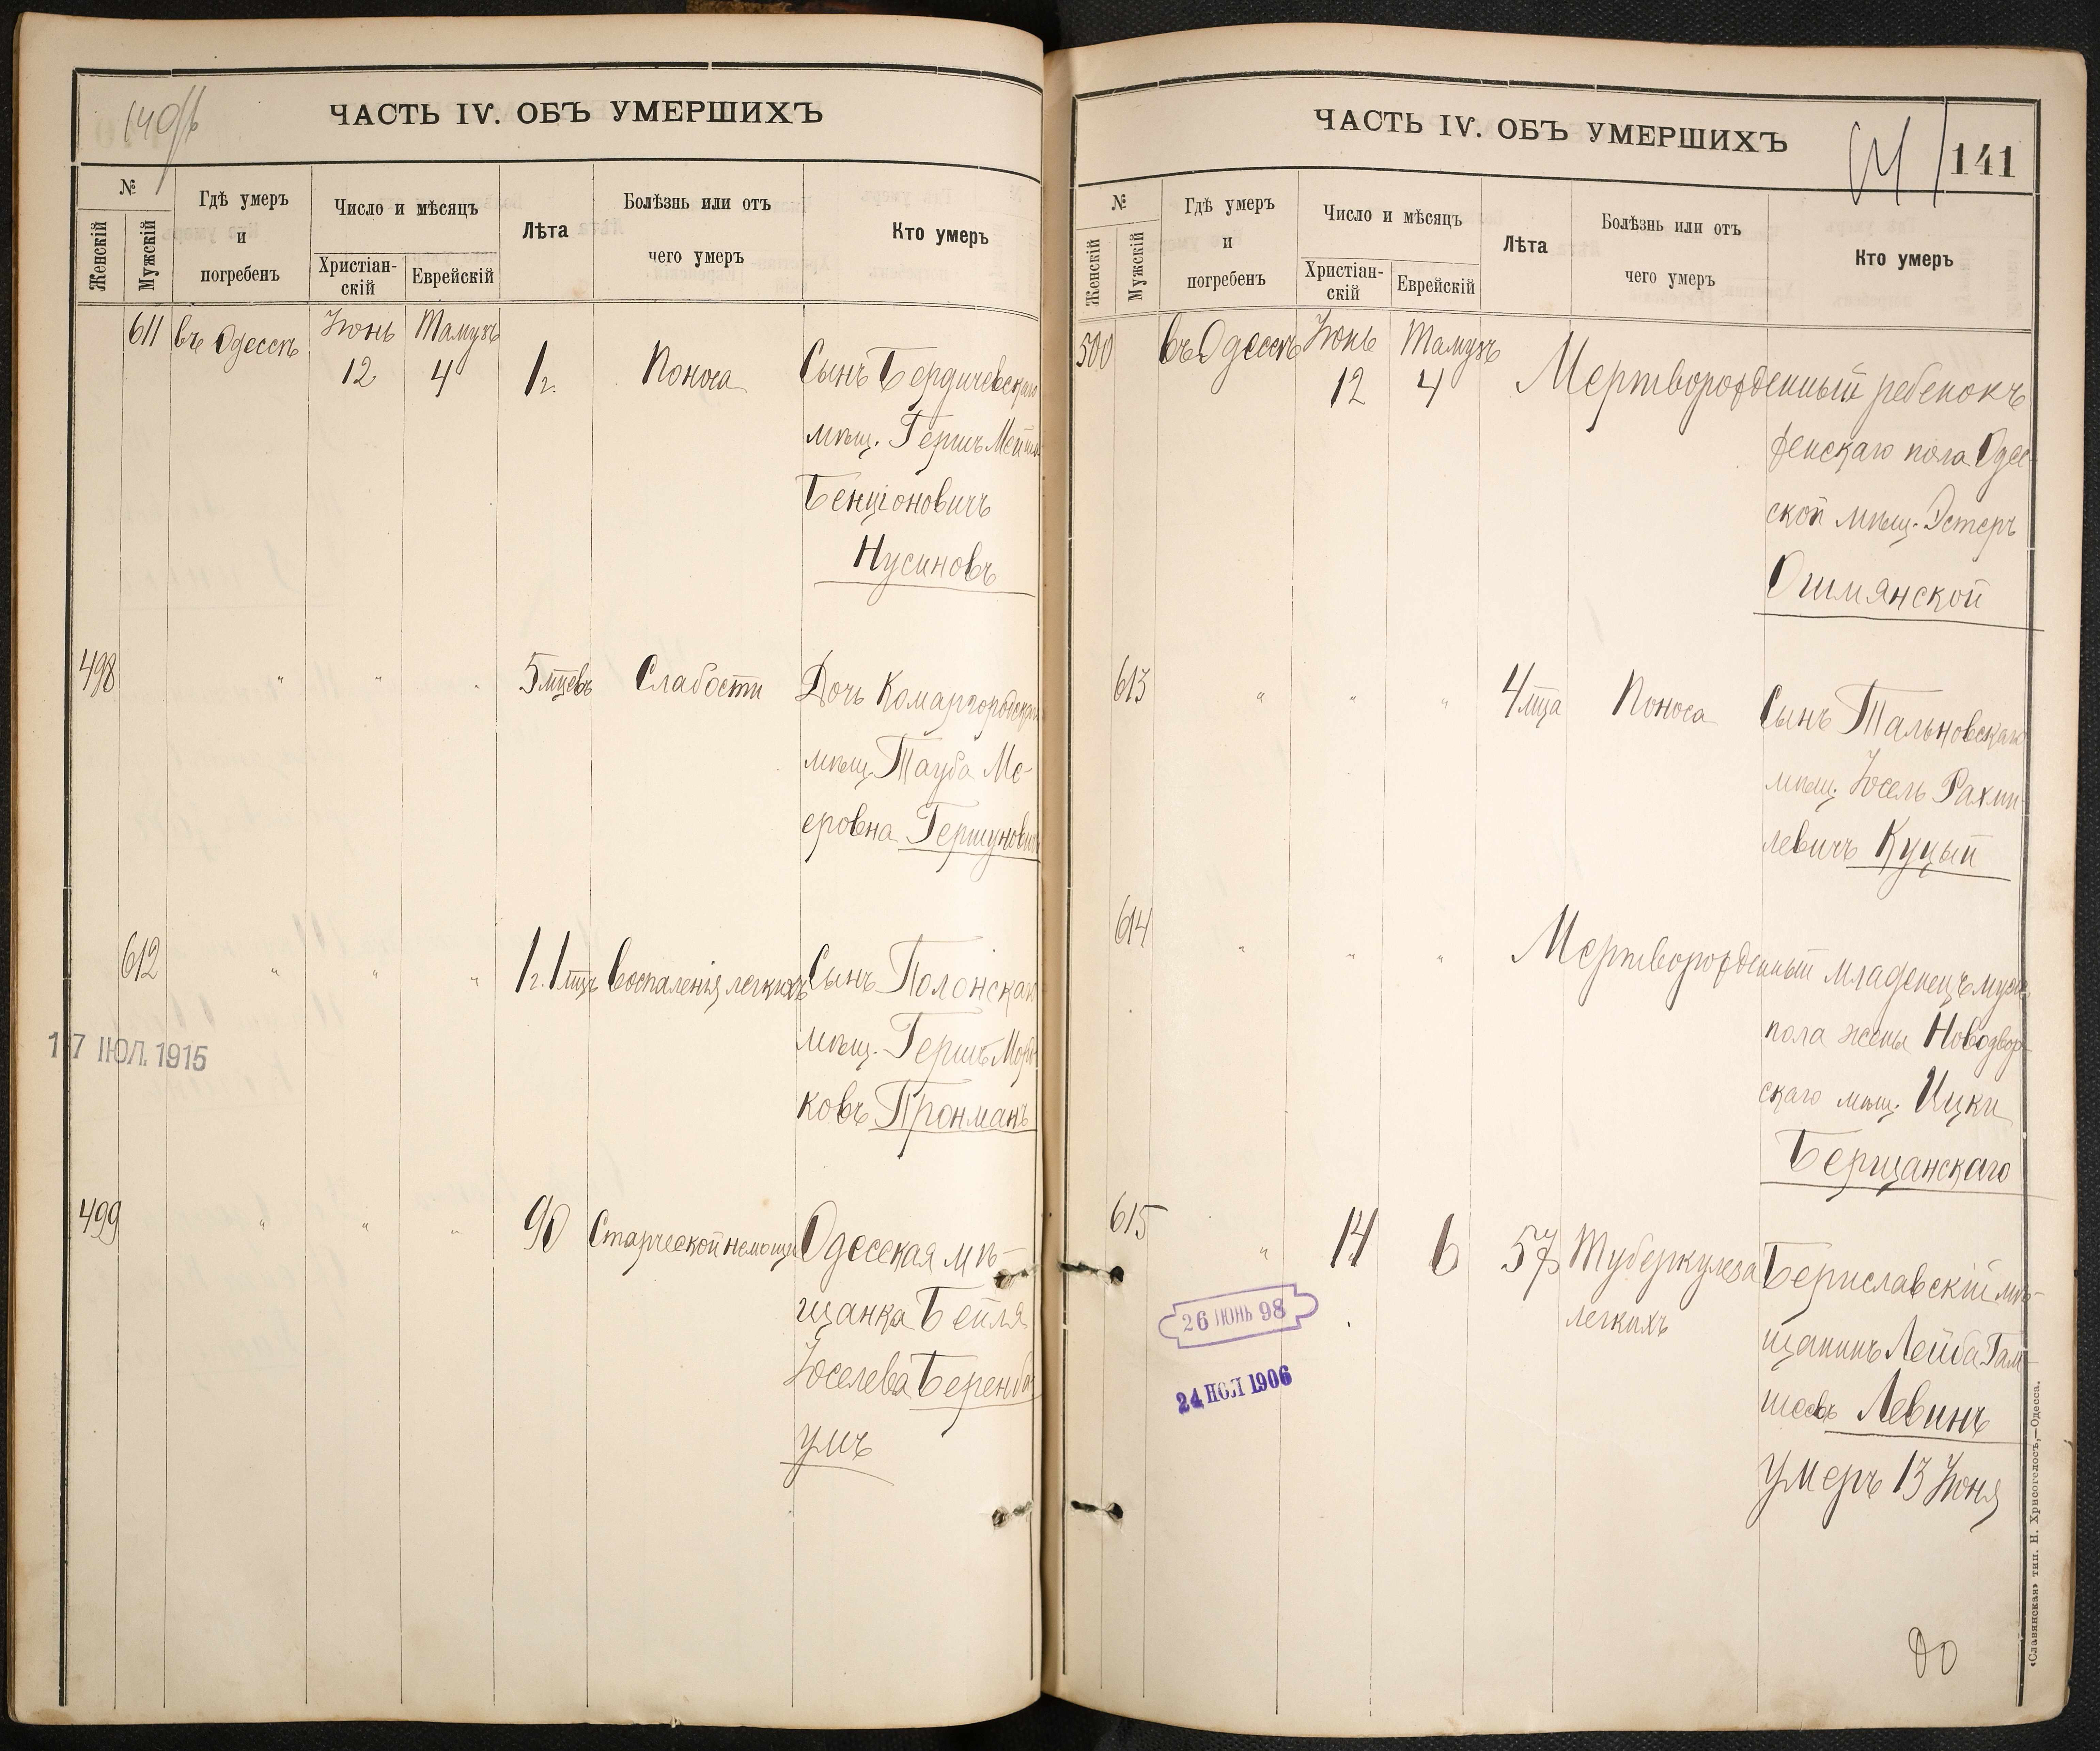 140 об
ЧАСТЬ IV. ОБЪ УМЕРШИХЪ
№
Женскій
Мужскій
Гдѣ умеръ
и
погребенъ
Число и мѣсяцъ
Христіан-
скій
Еврейскій
Лѣта
Болѣзнь или отъ
чего умеръ
Кто умеръ
611 въ Одессѣ Іюнь 12 Тамузъ 4 1 г. Поноса Сынъ Бердичевскаго
мѣщ. Гершъ
Бенціоновичъ
Нусиновъ
498 " " " 5 мцевъ Слабости Дочь Комаргородскаго
мѣщ. Тауба Ме-
еровна Гершуновичъ
612 " " " 1 г. 1 мцъ Воспаленія легкихъ Сынъ Полонскаго
мѣщ. Гершъ Морд-
ковъ Пронманъ
17 ІЮЛ. 1915
499 " " " 90 Старческой немощи Одесская мѣ-
щанка Бейля
Іоселева Беренба-
умъ
ЧАСТЬ IV. ОБЪ УМЕРШИХЪ
141
141
№
Женскій
Мужскій
Гдѣ умеръ
и
погребенъ
Число и мѣсяцъ
Христіан-
скій
Еврейскій
Лѣта
Болѣзнь или отъ
чего умеръ
Кто умеръ
500 въ Одессѣ Іюнь 12 Тамузъ 4 Мертворожденный ребенокъ
женскаго пола Одес-
ской мѣщ. Эстеръ
Ошмянской
613 " " " 4 мца Поноса Сынъ Тальновскаго
мѣщ. Іосель Рахми-
левичъ Куцый
614 " " " Мертворожденный младенецъ муж.
пола жены Новодвор-
скаго мѣщ. Ицки
Берщанскаго
615 " 14 6 57 Туберкулеза Бериславскій мѣ-
легкихъ
щанинъ Лейба Гам-
шеевъ Левинъ
умеръ 13 Іюня
26 ІЮНЬ 98
24 ІЮЛ 1906
«Славянская» тип. Н. Хрисогелосъ,—Одесса.